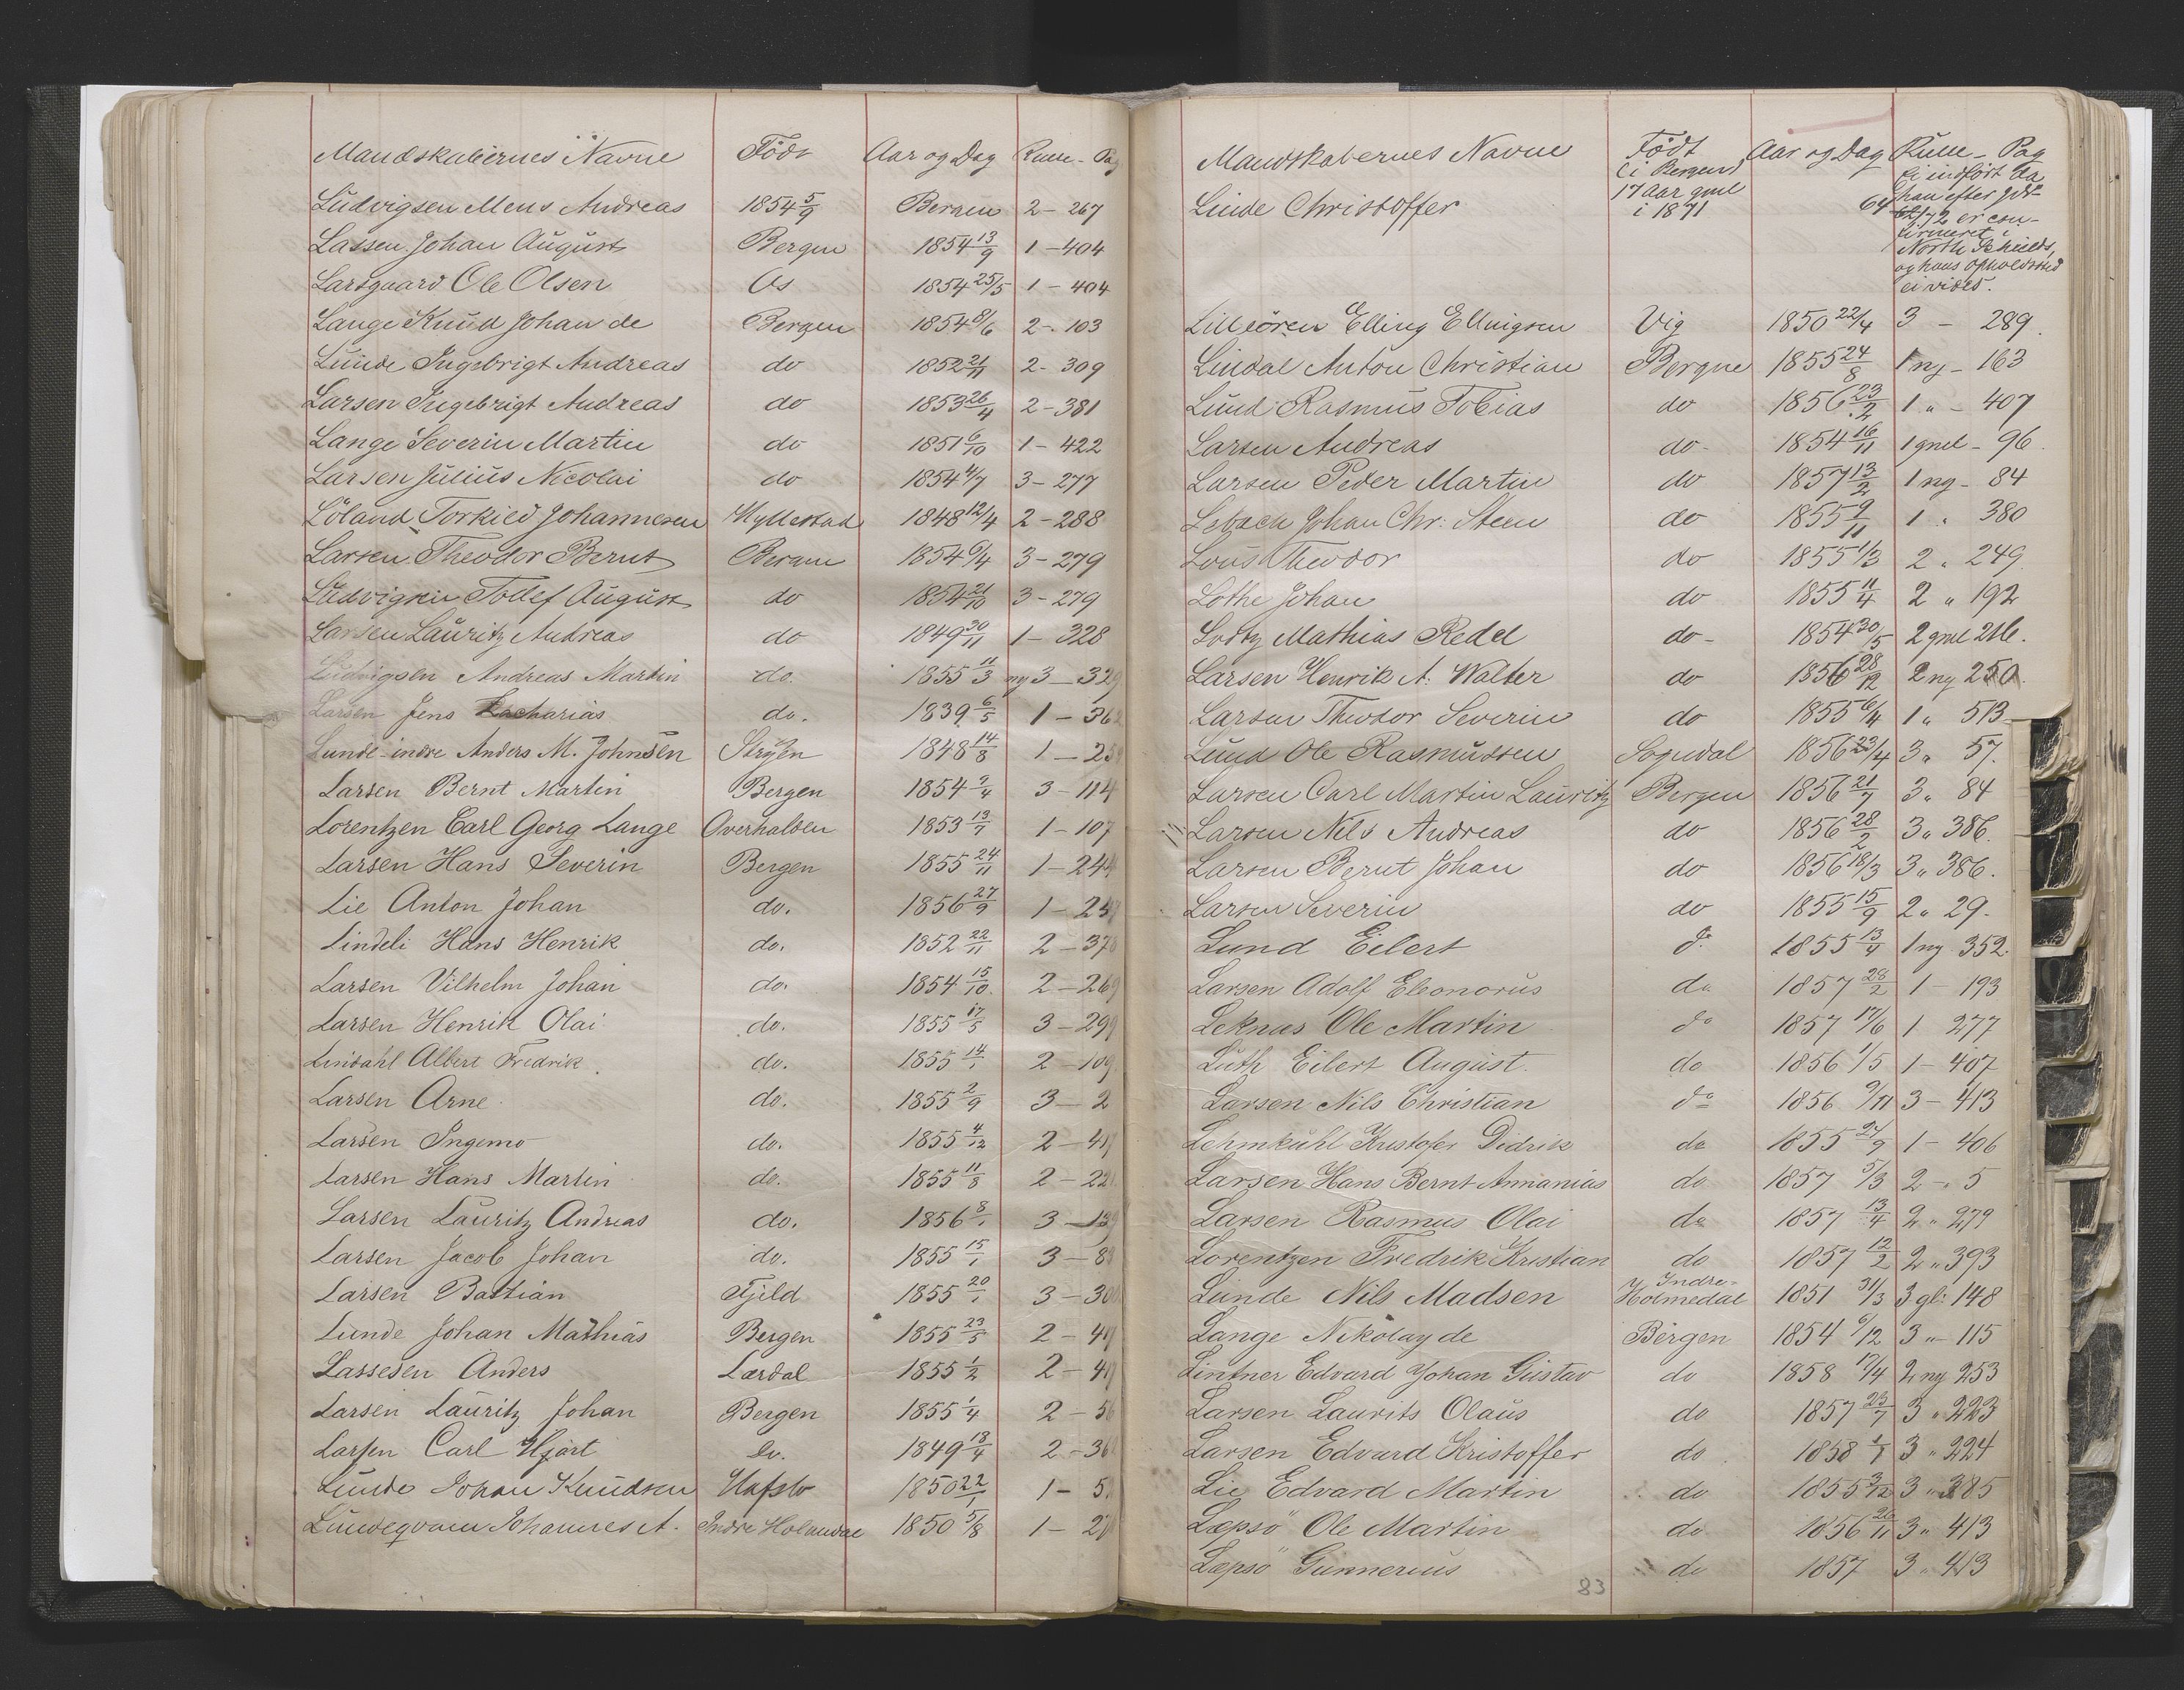 Mandskabernes Navne Født Aar og Dag Rulle - Pag
Ludvigsen Mens Andreas 1854 5/9 Bergen 2 - 267
Lassen Johan August Bergen 1854 13/9 1 - 404
Larsgaard Ole Olsen Os 1854 25/5 1 - 404
Lange Knud Johan de Bergen 1854 8/6 2 - 103
Lunde Ingebrigt Andreas do 1852 21/11 2 - 309
Larsen Ingebrigt Andreas do 1853 26/4 2 - 381
Lange Severin Martin do 1851 6/10 1 - 422
Larsen Julius Nicolai do 1854 4/7 3 - 277
Löland Torkild Johannesen Hyllestad 1848 12/4 2 - 288
Larsen Theodor Bernt Bergen 1854 6/4 3 - 279
Ludvigsen Tollef August do 1854 21/10 3 - 279
Larsen Lauritz Andreas do 1849 30/11 1 - 328
Ludvigsen Andreas Martin do. 1855 11/3 ny 3 - 329
Larsen Jens Zacharias do. 1839 6/5 1 - 36
Lunde-indre Anders M. Johnsen Stryen 1848 14/8 1 - 25
Larsen Bernt Martin Bergen 1854 9/4 3 - 114
Lorentzen Carl Georg Lange Overhalden 1853 13/7 1 - 107
Larsen Hans Severin Bergen 1855 24/11 1 - 244
Lie Anton Johan do. 1856 27/9 1 - 25
Lindeli Hans Henrik do. 1852 22/11 2 - 37
Larsen Vilhelm Johan do. 1854 15/10 2 - 269
Larsen Henrik Olai do. 1855 17/5 3 - 299
Lindahl Albert Fredrik do. 1855 14/1 2 - 109
Larsen Arne do. 1855 2/9 3 - 2
Larsen Ingemo do. 1855 4/12 2 - 41
Larsen Hans Martin do. 1855 11/8 2 - 22
Larsen Lauritz Andreas do. 1856 8/1 3 - 139
Larsen Jacob Johan do. 1855 15/1 3 - 8
Larsen Bastian Fjeld 1855 20/1 3 - 30
Lunde Johan Mathias Bergen 1855 23/5 2 - 4
Lassesen Anders Lærdal 1855 1/2 2 - 4
Larsen Lauritz Johan Bergen 1855 1/4 2 - 56
Larsen Carl Hjort do. 1849 18/4 2 - 36
Lunde Johan Knudsen Hafslo 1850 22/1 1 - 5
Lundeqvam Johannes A. Indre Holmedal 1850 5/8 1 - 2
Mandskabernes Navne Født Aar og Dag Rulle - Pag
Linde Christoffer (i Bergen) 17 Aar gml i 1871 64
ei indført da
han efter Jdst
62/72 er con-
firmeret i
North Schields,
og hans opholdssted
ei vides.
Lilleören Elling Ellingsen Vig 1850 22/4 3 - 289
Lindal Anton Christian Bergen 1855 24/8 1 ny - 163
Lund Rasmus Tobias do 1856 23/2 1 " - 407
Larsen Andreas do - 1854 16/11 1 gml - 96
Larsen Peder Martin do 1857 13/2 1 ny - 84
Lsbach Johan Chr: Steen do 1855 9/11 1 " 380
Lous Theodor do 1855 1/3 2 " 249
Lothe Johan do 1855 11/4 2 " 192
Lodtz Mathias Redel do - 1854 30/5 2 gml 216.
Larsen Henrik A. Walter do 1856 28/12 2 ny 250.
Larsen Theodor Severin do 1855 6/4 1 " 513
Lund Ole Rasmussen Sogndal 1856 23/4 3 " 57.
Larsen Carl Martin Lauritz Bergen 1856 21/7 3 " 84
Larsen Nils Andreas do 1856 28/2 3 " 386.
Larsen Bernt Johan do 1856 18/3 3 " 386.
Larsen Severin do 1855 15/9 2 " 29.
Lund Eilert do 1855 13/4 1 ny 352.
Larsen Adolf Eleonorus do 1857 28/2 1 - 193
Leknas Ole Martin do 1857 17/6 1 277
Luth Eilert August do 1856 1/5 1 - 407
Larsen Nils Christian do 1856 9/11 3 - 413
Lehmkuhl Kristofer Didrik do 1855 24/9 1 - 406
Larsen Hans Bernt Annanias do 1857 5/3 2 - " 5
Larsen Rasmus Olai do 1857 13/4 2 " 279
Lorentzen Fredrik Kristian do 1857 12/2 2 " 393
Lunde Nils Madsen Indre-Holmedal 1851 31/3 3 gl: 148
Lange Nikolay de Bergen 1854 6/12 3 " - 115
Lintner Edvard Johan Gustav do 1858 17/4 2 ny 253
Larsen Laurits Olaus do 1857 23/7 3 " 223
Larsen Edvard Kristoffer do 1858 1/1 3 " 224
Lie Edvard Martin do 1855 3/12 3 " 385
Læpsö Ole Martin do 1856 26/11 3 " 413
Læpsö Gunnerius do 1857 3 " 413
83